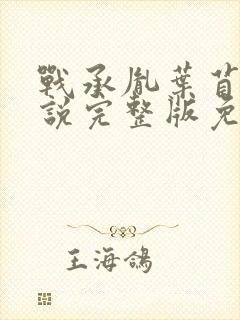 戰承胤葉苜
說完整版免
王海鴿